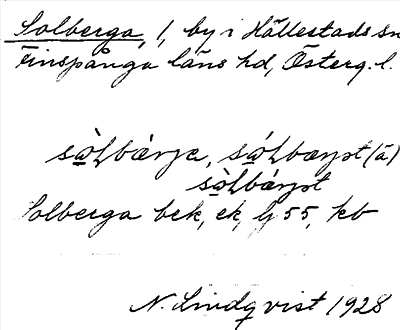 Solberga, 1, by i Hällestads sn
Finspånga läns hd, Österg. l.
sòɷLbàrja, sóɷLbærjst (ä)
sòɷLbárjst
Solberga bek, ek, G 55, kb
N. Lindqvist 1928